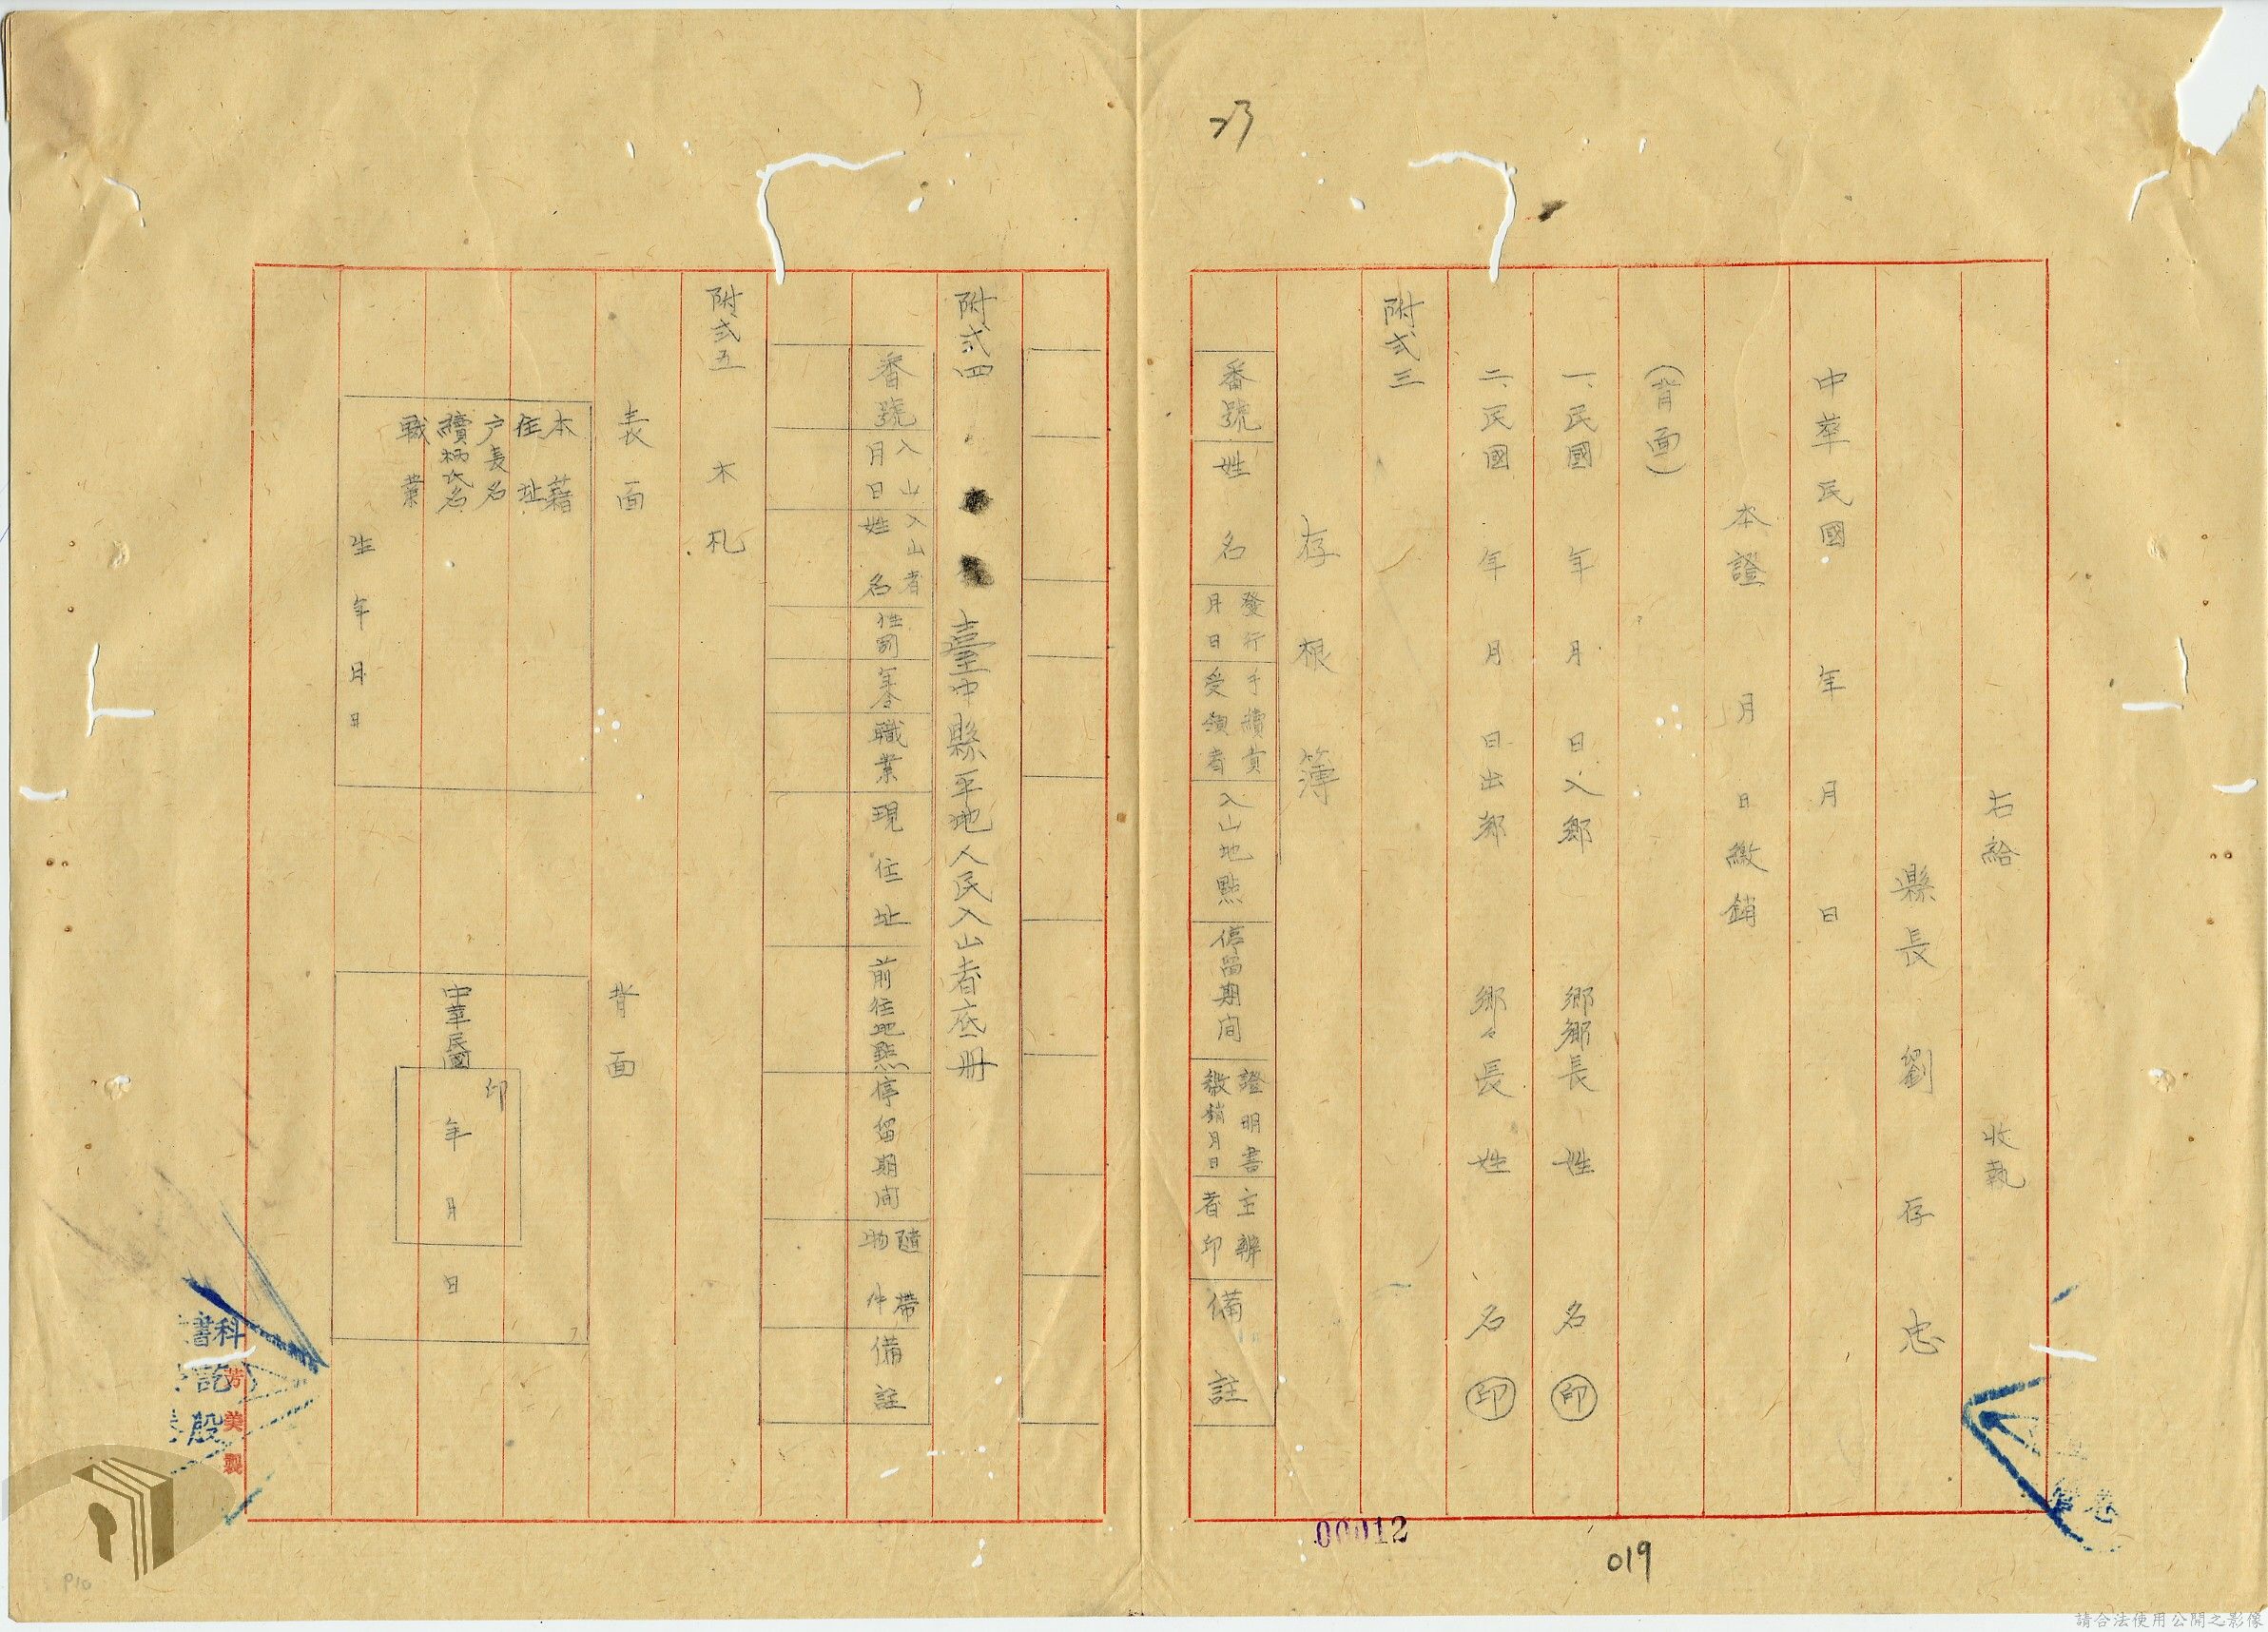 右給 收執
縣長 劉存忠
中華民國 年 月 日
本證 月 日繳銷
(背面)
一、民國 年 月 日入鄉 鄉鄉長 姓 名 印
二、民國 年 月 日出鄉 鄉々長 姓 名 印
附式三
存根簿
番號
姓名
發行月日
手續責受領者
入山地點
停留期間
證明書繳銷月日
主辦者印
備註
附式四 臺中縣平地人民入山者底冊
番號
入山月日
入山者姓名
性別
年令
職業
現住址
前往地點
停留期間
隨帶物件
備註
附式五 木札
表面
本籍
住址
戶長名
續柄氏名
職業
生年月日
背面
中華民國
印
年 月 日
芳美製
00012
019
P10
請合法使用公開之影像